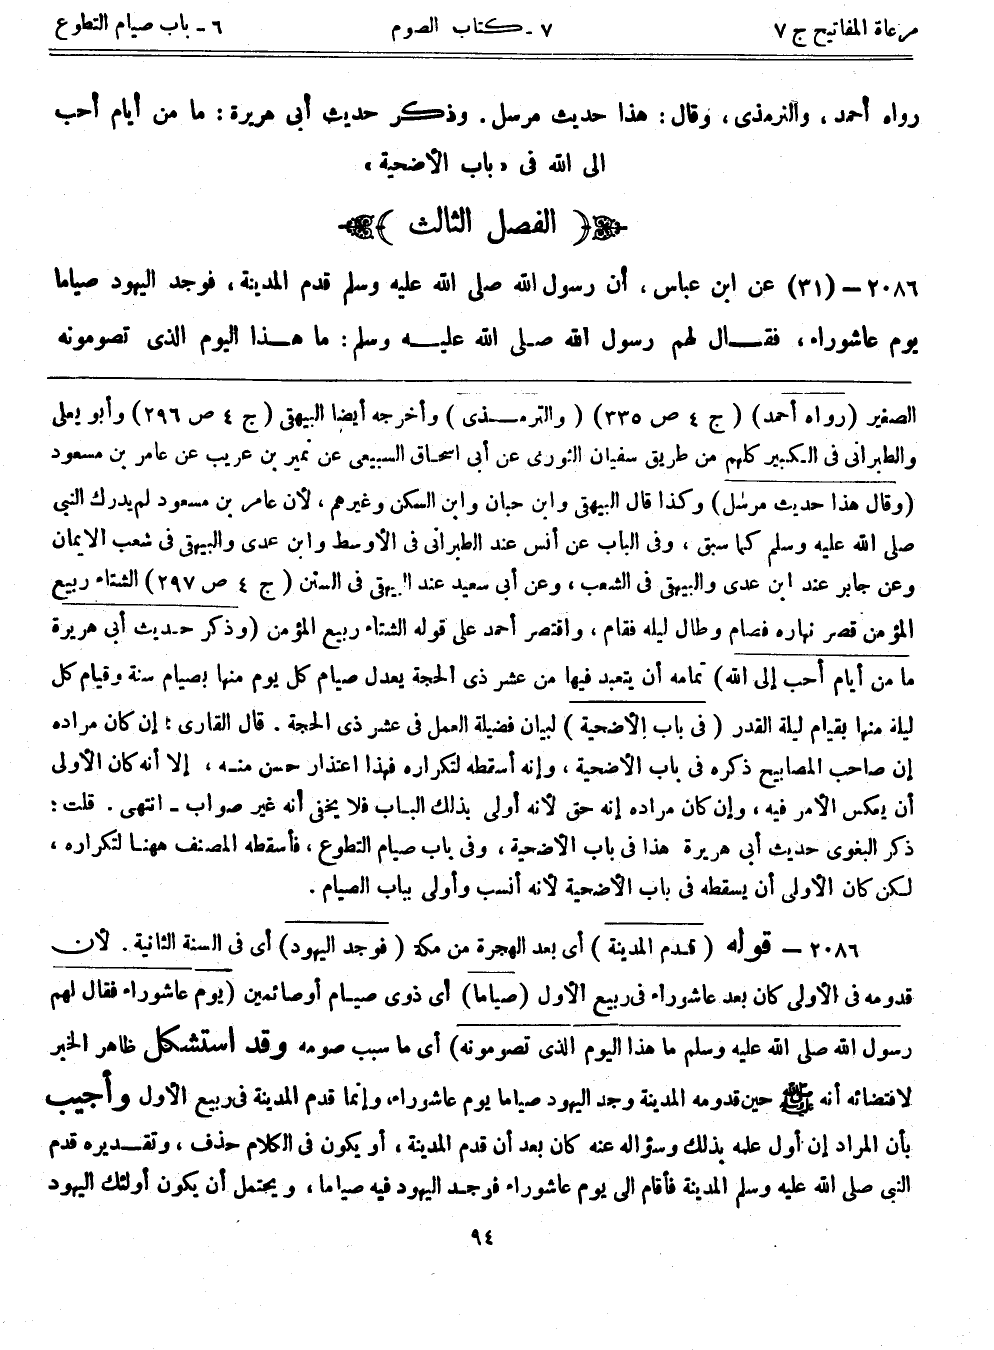 مرعاة المفاتيح ج ٧ ٧ - كتاب الصوم ٦ - باب صيام التطوع
رواه أحمد ، والترمذى ، وقال : هذا حديث مرسل . وذكر حديث أبى هريرة : ما من أيام أحب
الى الله فى « باب الأضحية »
﴿ الفصل الثالث ﴾
٢٠٨٦ – (٣١) عن ابن عباس ، أن رسول الله صلى الله عليه وسلم قدم المدينة ، فوجد اليهود صياما
يوم عاشوراء ، فقال لهم رسول الله صلى الله عليه وسلم : ما هذا اليوم الذى تصومونه
الصغير (رواه أحمد) ( ج ٤ ص ٣٣٥) ( والترمذى ) وأخرجه أيضا البيهقى ( ج ٤ ص ٢٩٦) وأبو يعلى
والطبرانى فى الكبير كلهم من طريق سفيان الثورى عن أبى اسحاق السبيعى عن نمير بن عريب عن عامر بن مسعود
(وقال هذا حديث مرسل) وكذا قال البيهقى وابن حبان وابن السكن وغيرهم ، لأن عامر بن مسعود لم يدرك النبى
صلى الله عليه وسلم كما سبق ، وفى الباب عن أنس عند الطبرانى فى الأوسط وابن عدى والبيهقى فى شعب الايمان
وعن جابر عند ابن عدى والبيهقى فى الشعب ، وعن أبى سعيد عند البيهقى فى السنن ( ج ٤ ص ٢٩٧) الشتاء ربيع
المؤمن قصر نهاره فصام وطال ليله فقام ، واقتصر أحمد على قوله الشتاء ربيع المؤمن (وذكر حديث أبى هريرة
ما من أيام أحب إلى الله) تمامه أن يتعبد فيها من عشر ذى الحجة يعدل صيام كل يوم منها بصيام سنة وقيام كل
ليلة منها بقيام ليلة القدر ( فى باب الأضحية ) لبيان فضيلة العمل فى عشر ذى الحجة . قال القارى : إن كان مراده
إن صاحب المصابيح ذكره فى باب الأضحية ، وإنه أسقطه لتكراره فهذا اعتذار حسن منه ، إلا أنه كان الأولى
أن يعكس الأمر فيه ، وإن كان مراده إنه حق لأنه أولى بذلك الباب فلا يخفى أنه غير صواب - انتهى . قلت :
ذكر البغوى حديث أبى هريرة هذا فى باب الأضحية ، وفى باب صيام التطوع ، فأسقطه المصنف ههنا لتكراره ،
لكن كان الأولى أن يسقطه فى باب الأضحية لأنه أنسب وأولى بباب الصيام .
٢٠٨٦ – قوله ( قدم المدينة ) أى بعد الهجرة من مكة ( فوجد اليهود) أى فى السنة الثانية . لأن
قدومه فى الأولى كان بعد عاشوراء فى ربيع الأول (صياما) أى ذوى صيام أو صائمين (يوم عاشوراء فقال لهم
رسول الله صلى الله عليه وسلم ما هذا اليوم الذى تصومونه) أى ما سبب صومه وقد استشكل ظاهر الخبر
لاقتضائه أنه ﷺ حين قدومه المدينة وجد اليهود صياما يوم عاشوراء، وإنما قدم المدينة فى ربيع الأول وأجيب
بأن المراد إن أول علمه بذلك وسؤاله عنه كان بعد أن قدم المدينة ، أو يكون فى الكلام حذف ، وتقديره قدم
النبى صلى الله عليه وسلم المدينة فأقام الى يوم عاشوراء فوجد اليهود فيه صياما ، ويحتمل أن يكون أولئك اليهود
٩٤